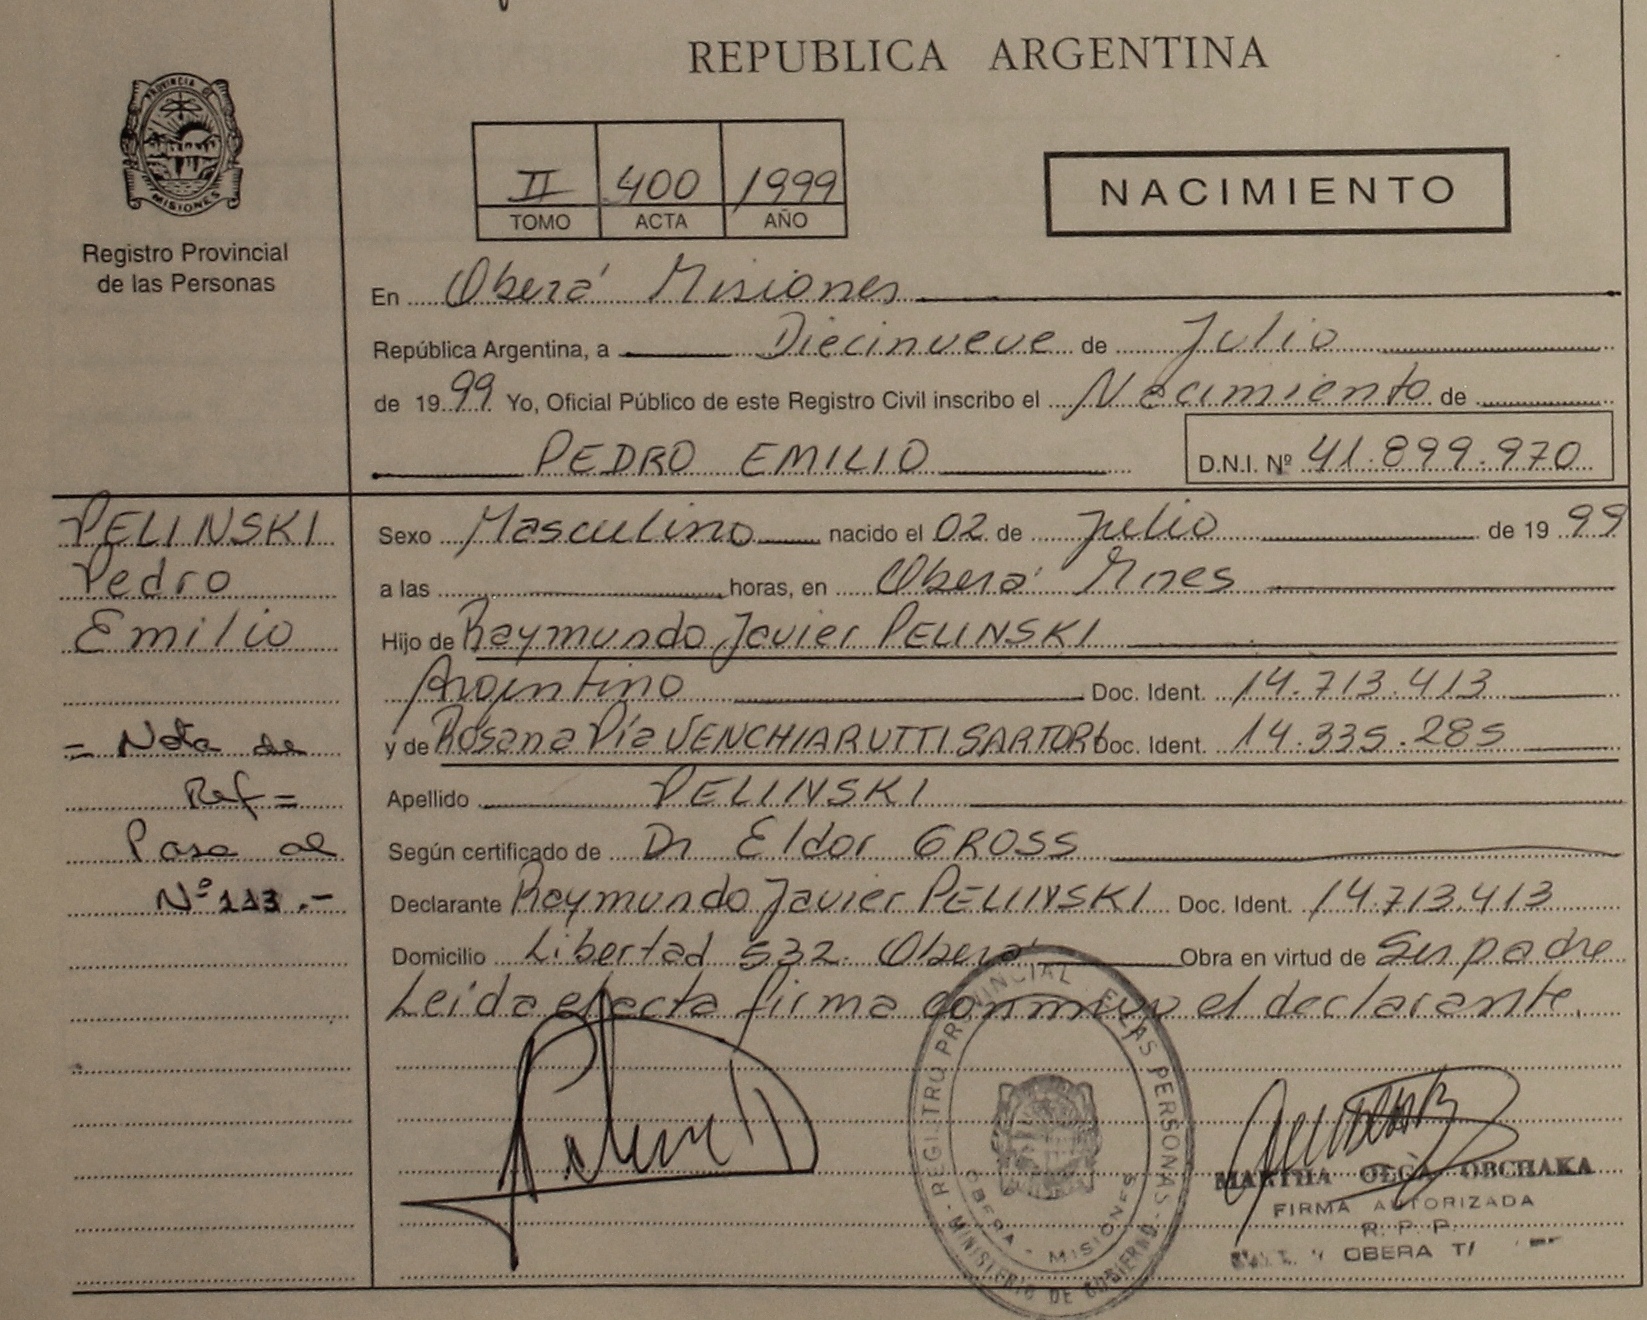 REPUBLICA ARGENTINA
PROVINCIA DE
MISIONES
Registro Provincial
de las Personas
II 400 1999
TOMO ACTA AÑO
NACIMIENTO
En Oberá Misiones
República Argentina, a Diecinueve de Julio
de 1999 Yo, Oficial Público de este Registro Civil inscribo el Nacimiento de
PEDRO EMILIO D.N.I. Nº 41.899.970
PELINSKI
Pedro
Emilio
= Nota de
Ref =
Pasa al
Nº 113.-
Sexo Masculino nacido el 02 de Julio de 1999
a las horas, en Oberá Mnes
Hijo de Raymundo Javier PELINSKI
Argentino Doc. Ident. 14.713.413
y de Rosana Pía VENCHIARUTTI SARTORI Doc. Ident. 14.335.285
Apellido PELINSKI
Según certificado de Dr Eldor GROSS
Declarante Raymundo Javier PELINSKI Doc. Ident. 14.713.413
Domicilio Libertad 532. Oberá Obra en virtud de Ser padre
Leída el acta firma conmigo el declarante.
REGISTRO PROVINCIAL DE LAS PERSONAS
OBERA - MISIONES
MINISTERIO DE GOBIERNO
MARTHA OLGA OBCHAKA
FIRMA AUTORIZADA
R. P. P.
OBERA